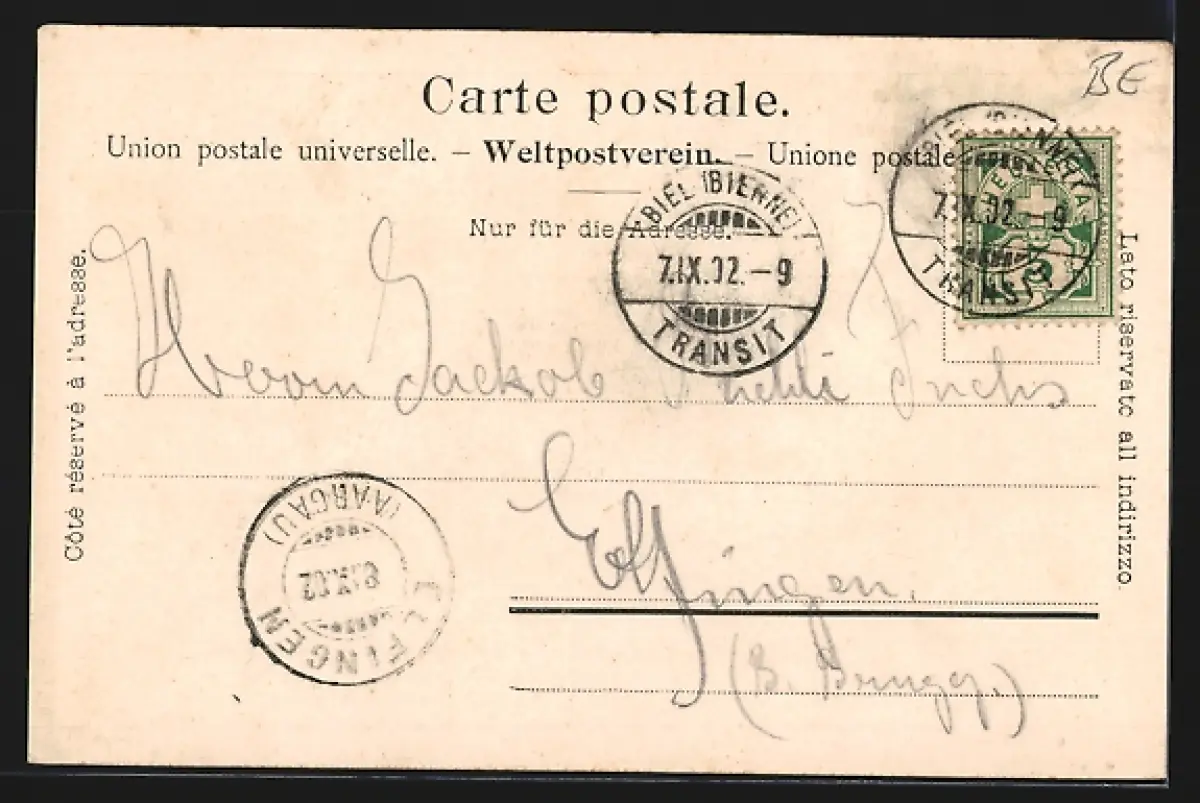 BE
Carte postale.
Union postale universelle. – Weltpostverein. – Unione postale
Nur für die Adresse.
BIEL (BIENNE)
7.IX.02.–9
TRANSIT
BIEL (BIENNE)
7.IX.02.–9
TRANSIT
HELVETIA
5
Côté réservé à l'adresse.
Lato riservato all indirizzo.
Herrn Jackob Fuchs
Elfingen.
(B. Brugg.)
ELFINGEN
8.IX.02
(AARGAU)